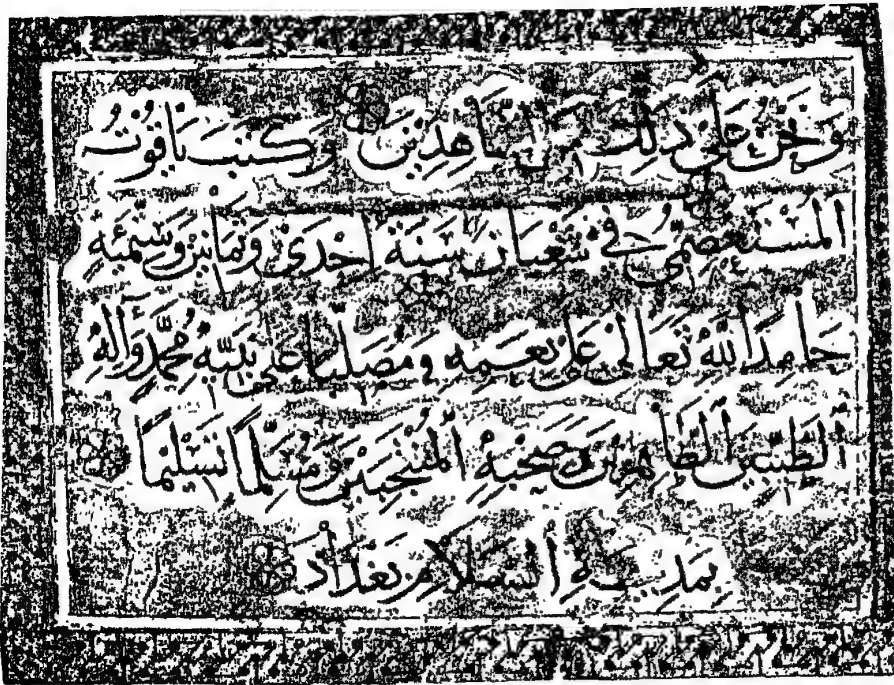 وَنَحْنُ عَلَى ذَلِكَ مِنَ الشَّاهِدِينَ وَكَتَبَ يَاقُوتُ
المُسْتَعْصِمِيُّ فِي شَعْبَانَ سَنَةَ إِحْدَى وَثَمَانِينَ وَسِتِّمِئَةٍ
حَامِدًا لِلَّهِ تَعَالَى عَلَى نِعَمِهِ وَمُصَلِّيًا عَلَى نَبِيِّهِ مُحَمَّدٍ وَآلِهِ
الطَّيِّبِينَ الطَّاهِرِينَ وَصَحْبِهِ المُنْتَجَبِينَ وَمُسَلِّمًا تَسْلِيمًا
بِمَدِينَةِ السَّلَامِ بَغْدَادَ